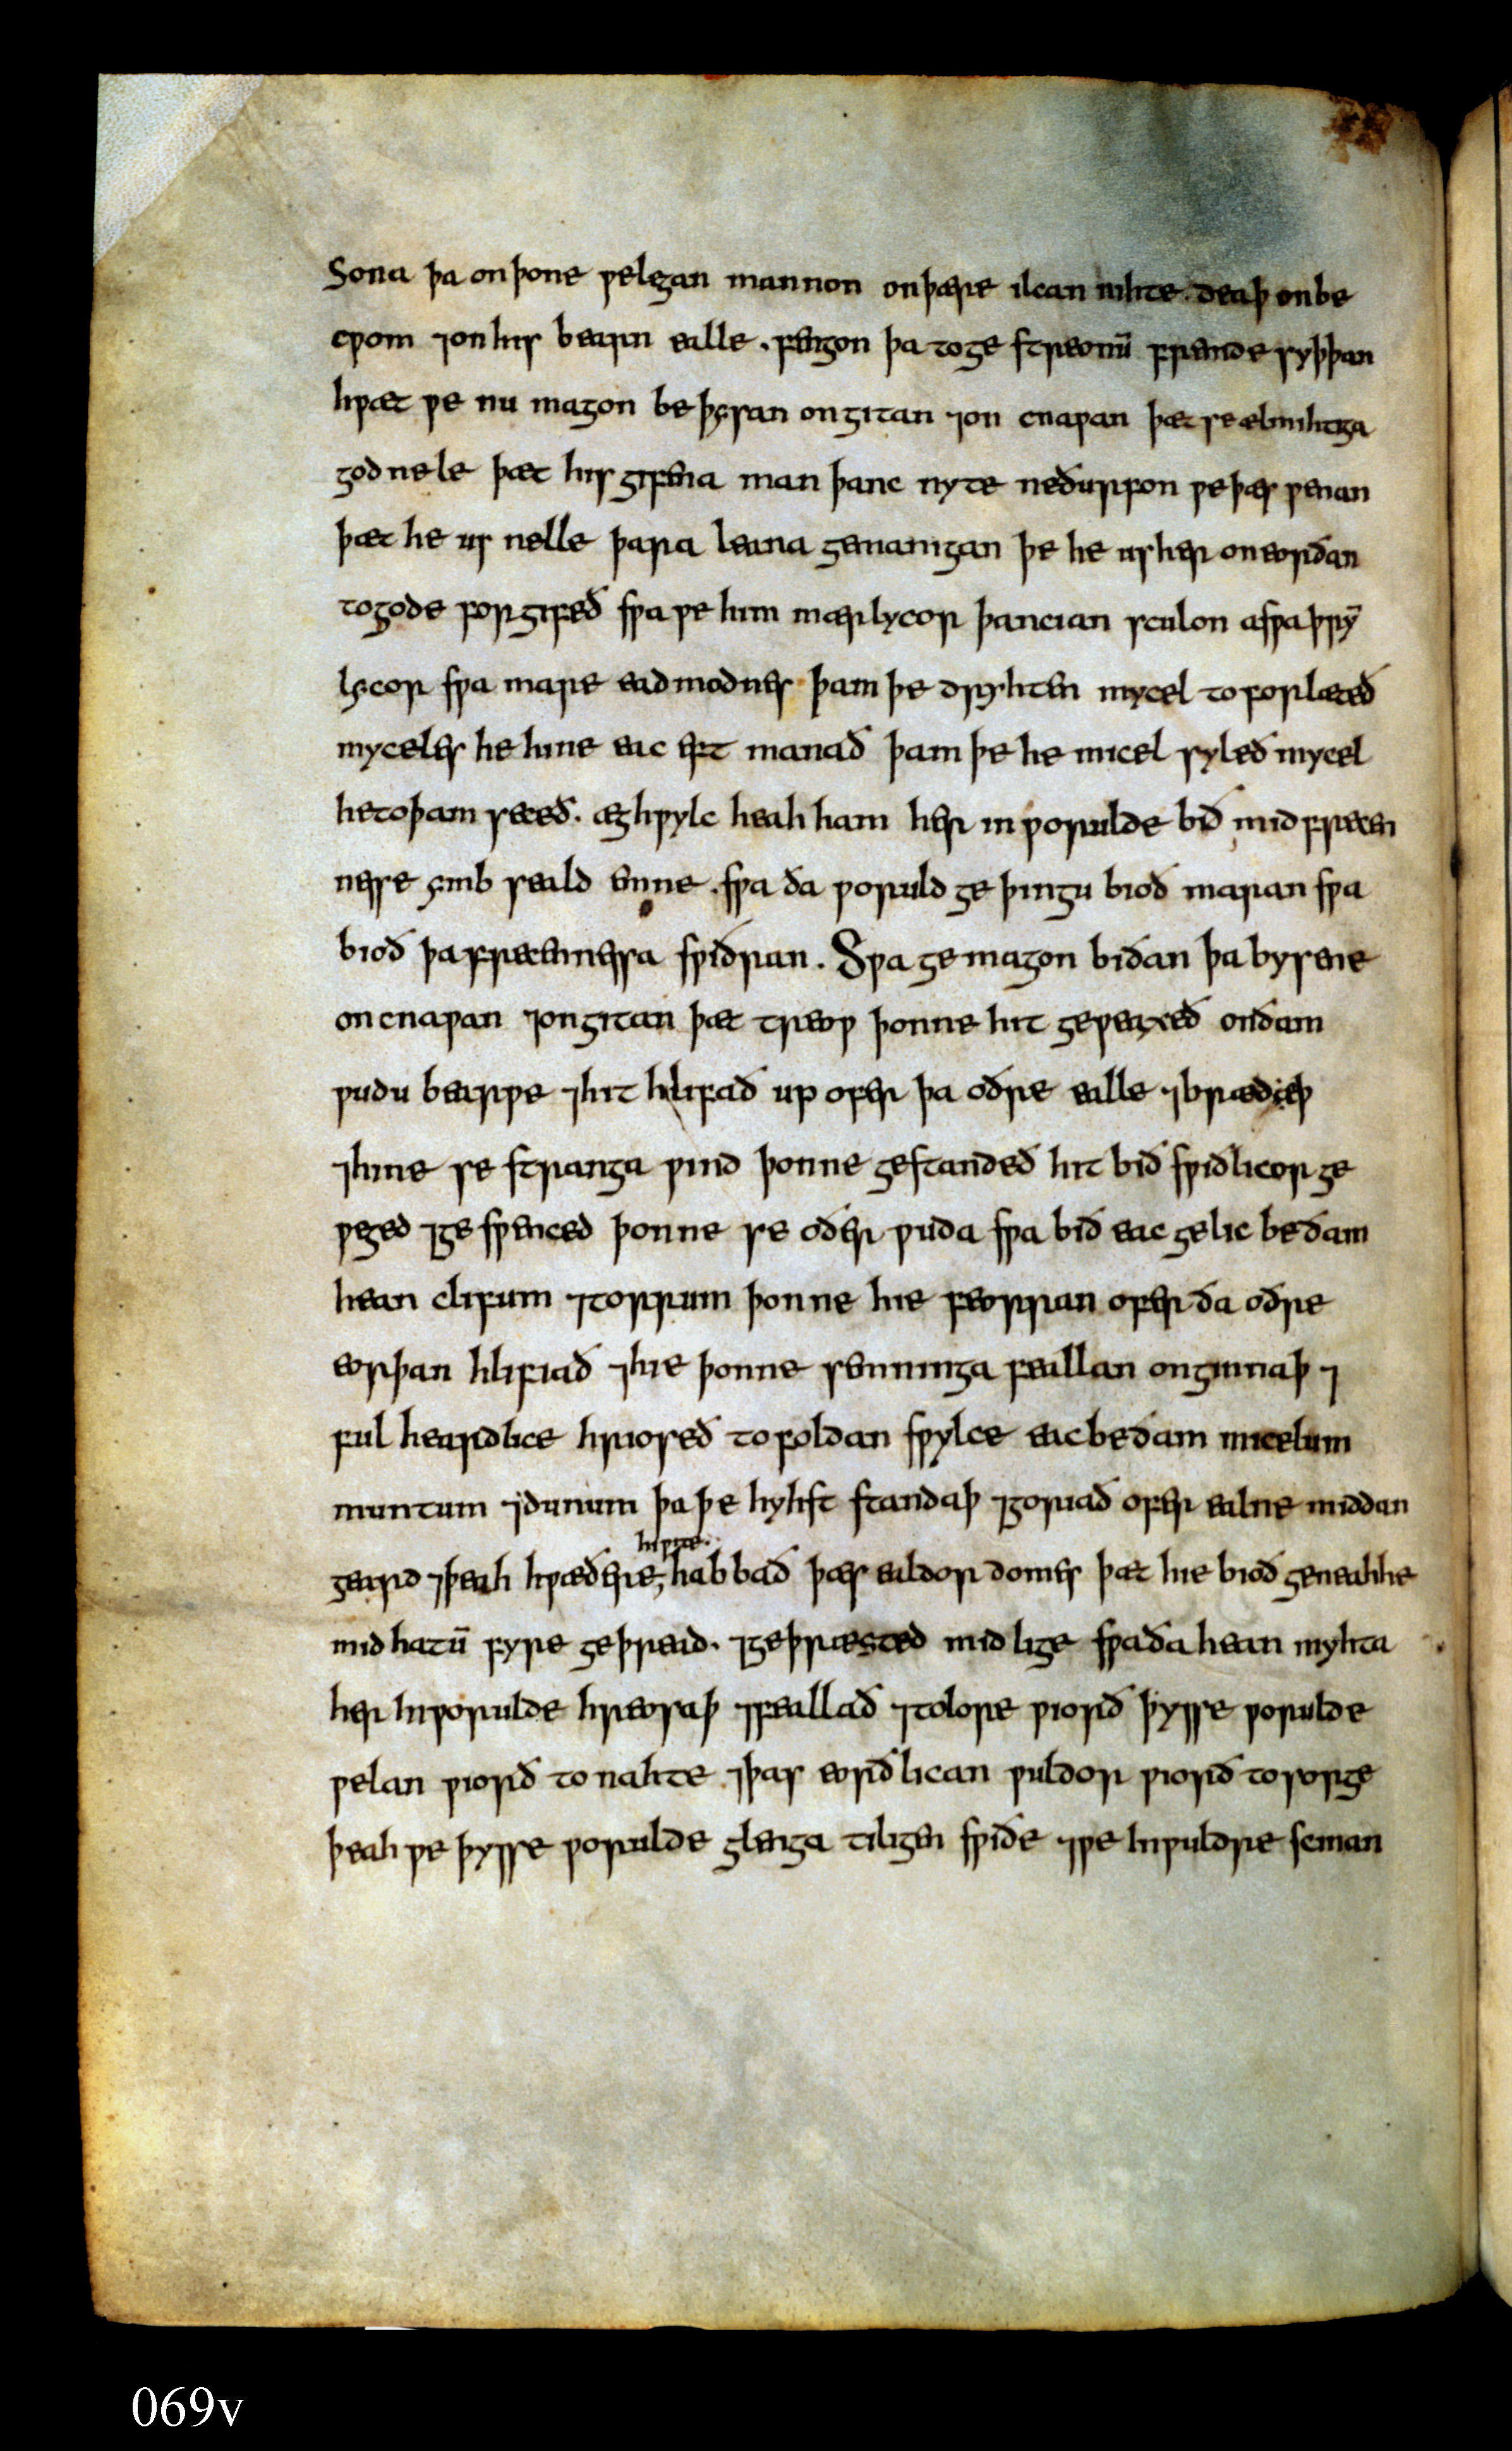 Sona þa on þone ƿelgan mannon on þære ilcan nihte. deaþ on be
cƿom ⁊ on his bearn ealle. fengon þa to ge streonū frænde syþþan
hƿæt ƿe nu magon be þysan ongitan ⁊ on cnaƿan þæt se ælmihtga
god nele þæt his gifena man þanc nyte ne ðurfon ƿe þæs ƿenan
þæt he us nelle þara leana gemanigan þe he us her on eorðan
to gode forgifeð sƿa ƿe him mærlycor þancian sculon a sƿa þrȳ
lycor sƿa mare eadmodnes þam þe dryhten mycel to forlæteð
myceles he hine eac eft manað þam þe he micel syleð mycel
he to þam seceð. æghƿylc heah ham her in ƿorulde bið mid frecen
nesse ymb seald enne. sƿa ða ƿoruld ge þingu bioð maran sƿa
bioð þa frecennessa sƿiðran. Sƿa ge magon bi ðan þa bysene
on cnaƿan ⁊ ongitan þæt treoƿ þonne hit geƿeaxeð on ðam
ƿudu bearƿe ⁊ hit hlifað up ofer þa oðre ealle ⁊ brædeþ
⁊ hine se stranga ƿind þonne gestandeð hit bið sƿiðlicor ge
ƿeged ⁊ ge sƿenced þonne se oðer ƿuda sƿa bið eac gelic be ðam
hean clifum ⁊ torrum þonne hie feorran ofer ða oðre
eorþan hlifiað ⁊ hie þonne semninga feallan onginnaþ ⁊
ful heardlice hrioseð to foldan sƿylce eac be ðam micelum
muntum ⁊ dunum þa þe hyhst standaþ ⁊ goriað ofer ealne middan
geard ⁊ þeah hƿæðere, habbað þæs ealdordomes þæt hie bioð geneahhe
mid hatū fyre geþread. ⁊ geþræsted mid lige sƿa ða hean myhta
her in ƿorulde hreosaþ ⁊ feallað ⁊ to lore ƿiorð þysse ƿorulde
ƿelan ƿiorð to nahte ⁊ þas eorðlican ƿuldor ƿiorð to sorge
þeah ƿe þysse ƿorulde glenga tiligen sƿiðe ⁊ ƿe in ƿuldre scinan
069v